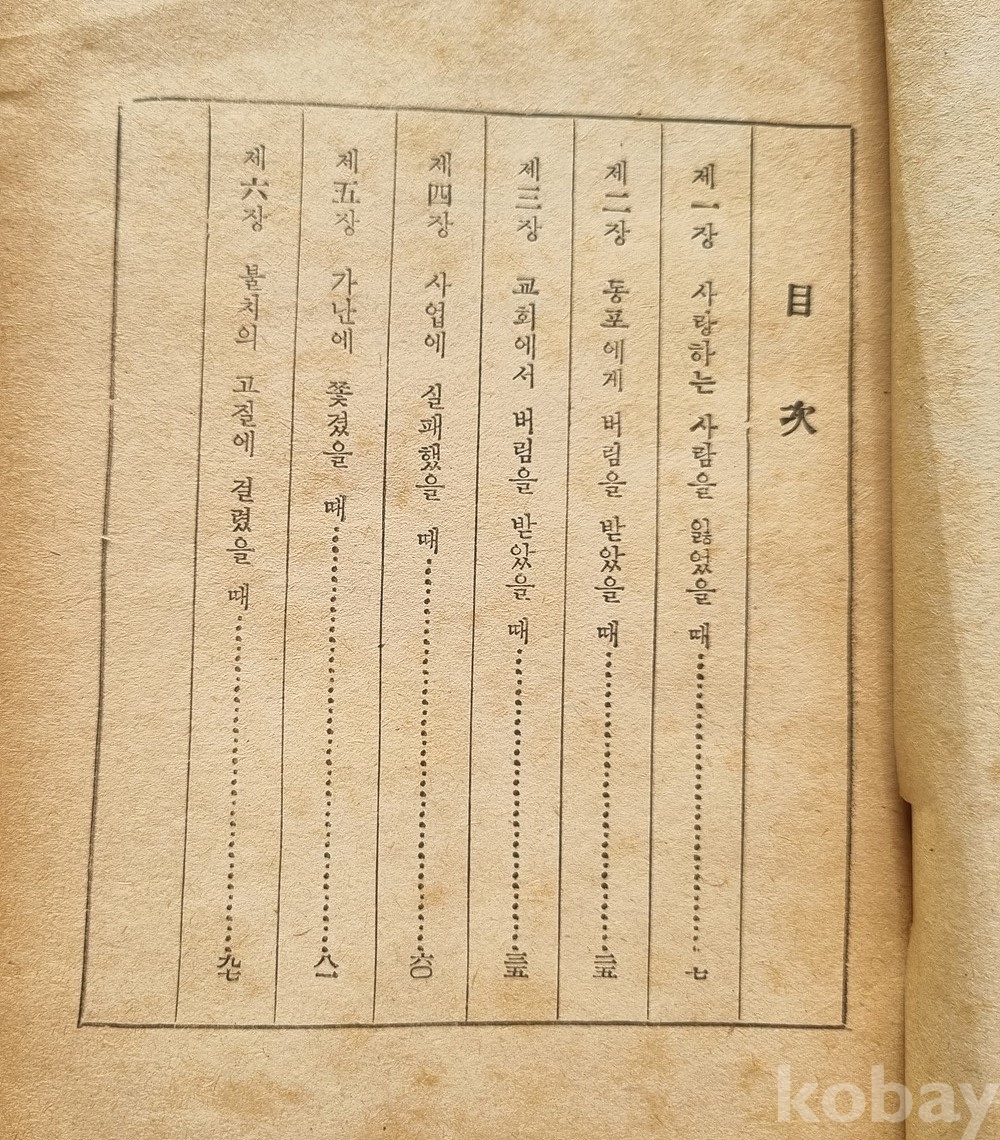 目次
제一장 사랑하는 사람을 잃었을 때 七
제二장 동포에게 버림을 받았을 때 二五
제三장 교회에서 버림을 받았을 때 三五
제四장 사업에 실패했을 때 六〇
제五장 가난에 쫓겼을 때 八一
제六장 불치의 고질에 걸렸을 때 九七
kobay